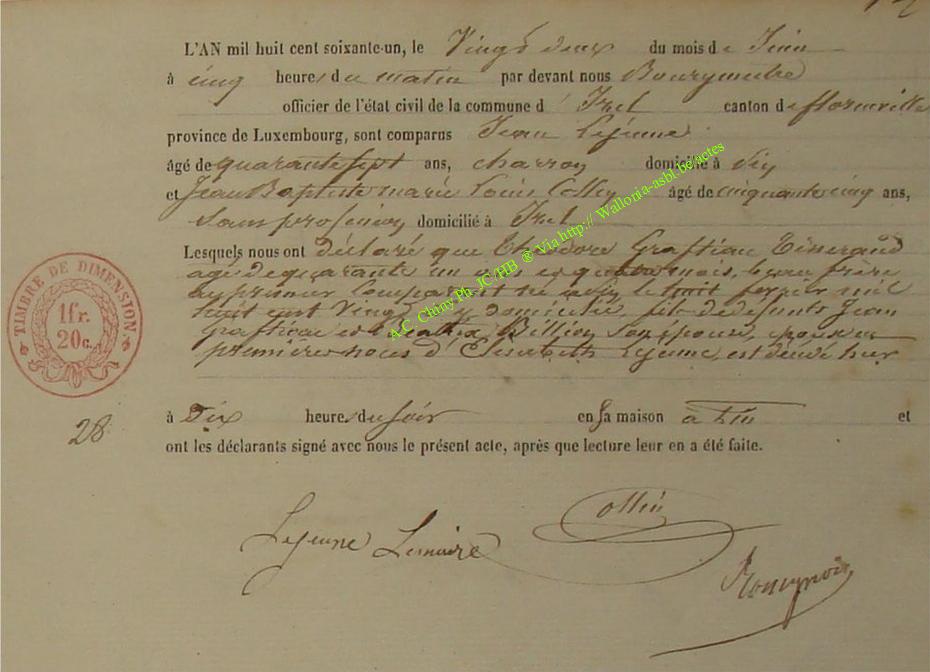 L'AN mil huit cent soixante-un, le Vingt deux du mois de Juin
à cinq heures du matin par devant nous Bourgmestre
officier de l'état civil de la commune d'Izel canton de florenville
province de Luxembourg, sont comparus Jean Lejeune
âgé de quarante sept ans, charron domicilié à
et Jean Baptiste marie Louis Collin âgé de cinquante cinq ans,
Sans profession domicilié à Izel
Lesquels nous ont déclaré que Théodore Graftiau tisserand
agé de quarante un ans et quatre mois, beau frère
au premier Comparant né le huit février mil
huit cent Vingt domicilié, fils de défunts Jean
Graftiau et Billion Son épouse, époux en
premières noces d'Elisabeth Lejeune, est décédé hier
à Dix heures du soir en Sa maison à et
ont les déclarants signé avec nous le présent acte, après que lecture leur en a été faite.
28
TIMBRE DE DIMENSION
1fr.
20c.
A.C. Chiny Ph. JC/HB @ Via http:// Wallonia-asbl.be/actes
Lejeune Lemaire Collin